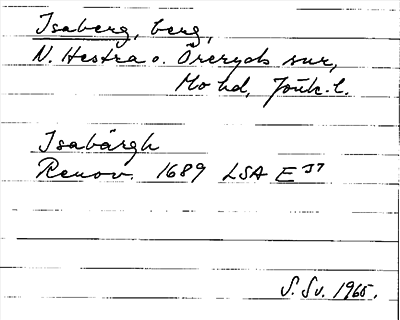 Isaberg, berg,
N. Hestra o. Öreryds snr,
Mo hd, Jönk. l.
Isabärgh
Renov. 1689 LSA E 37
S. Sv. 1965.